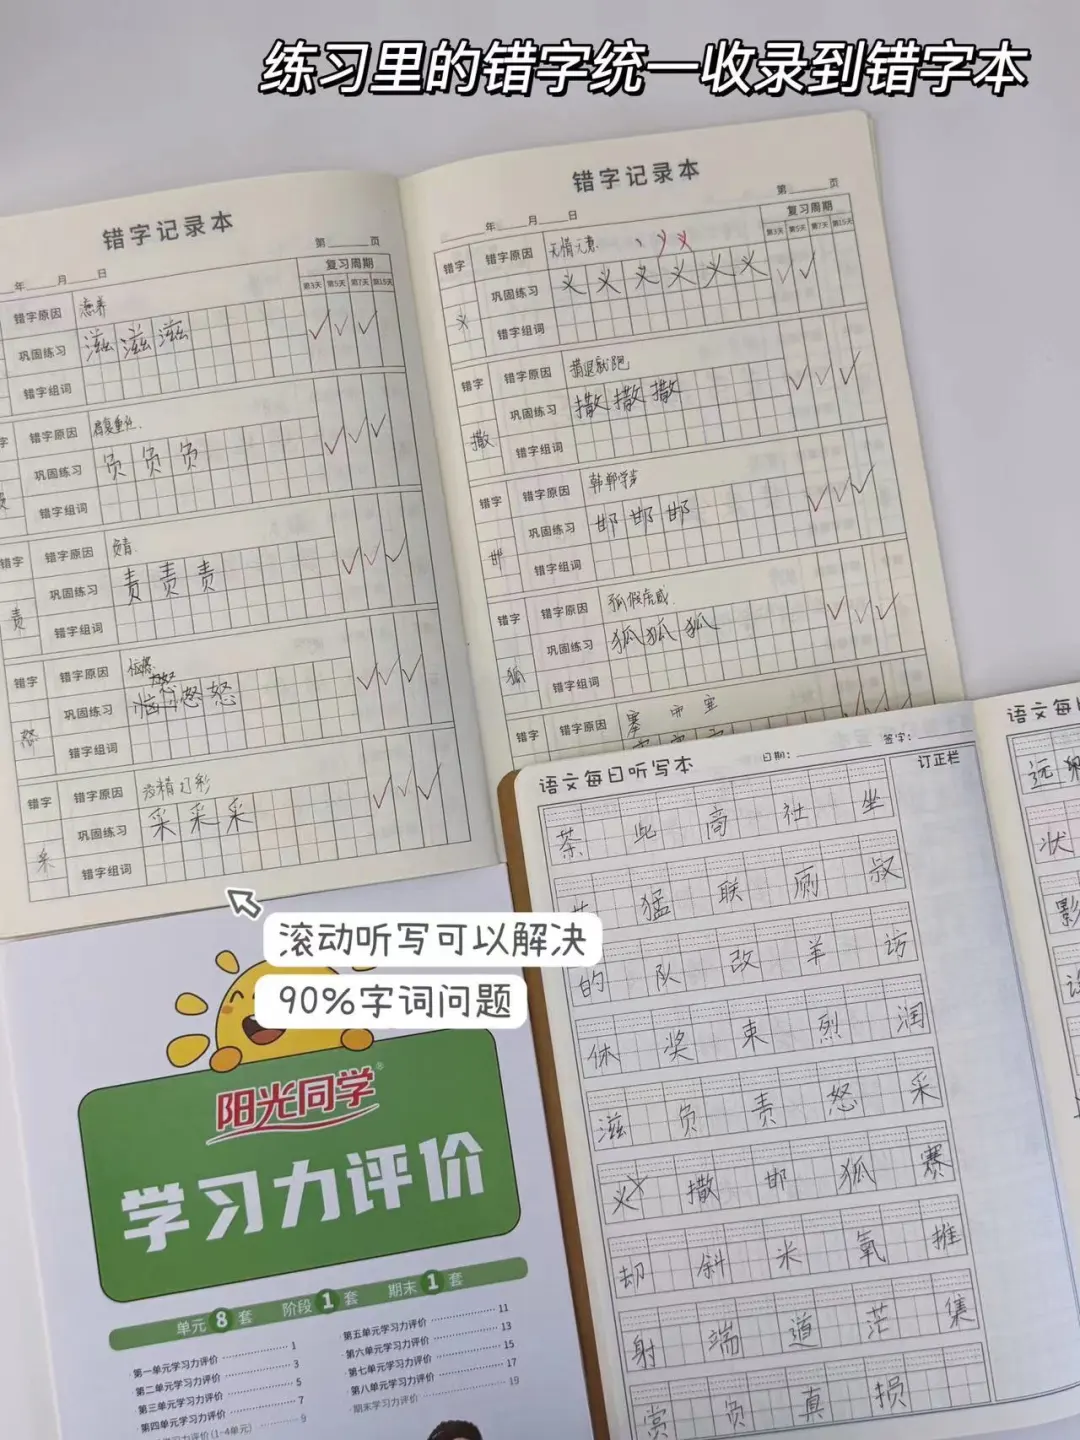 练习里的错字统一收录到错字本
错字记录本
年 月 日
第 页
错字原因
滋养
复习周期
第3天 第5天 第7天 第15天
巩固练习
滋 滋 滋
错字组词
错字原因
巩固练习
负 负 负
错字组词
错字
错字原因
巩固练习
责 责 责
责
错字组词
错字
错字原因
巩固练习
恼 怒 怒
怒
错字组词
错字
错字原因
巩固练习
采 采 采
采
错字组词
错字记录本
年 月 日
第 页
错字
错字原因
复习周期
第3天 第5天 第7天 第15天
巩固练习
义 义 义 义 义 义
义
错字组词
错字
错字原因
撒退就跑
巩固练习
撒 撒 撒
撒
错字组词
错字
错字原因
邯郸学步
巩固练习
邯 邯 邯
邯
错字组词
错字
错字原因
狐假虎威
巩固练习
狐 狐 狐
狐
错字组词
错字
错字原因
滚动听写可以解决
90%字词问题
语文每日听写本
日期:
签字:
订正栏
茶 此 商 社 坐
猛 联 厕 叔
的 队 改 羊 访
体 奖 束 烈 润
滋 负 责 怒 采
义 撒 邯 狐 赛
却 斜 米 氧 推
射 端 道 茫 集
赏 负 真 损
语文每日
远
状
影
阳光同学®
学习力评价
单元8套 阶段1套 期末1套
第一单元学习力评价 1
第二单元学习力评价 3
第三单元学习力评价 5
第四单元学习力评价 7
学习力评价 (1~4单元) 9
第五单元学习力评价 11
第六单元学习力评价 13
第七单元学习力评价 15
第八单元学习力评价 17
期末学习力评价 19